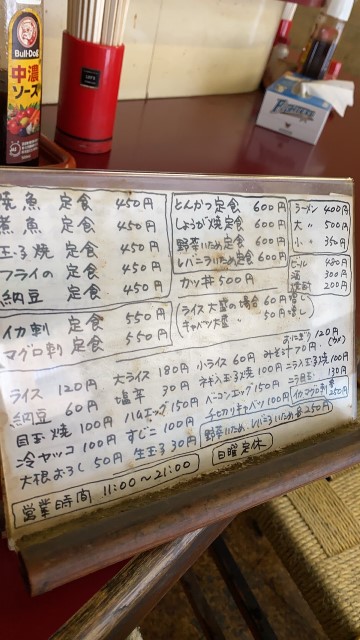 Bull-Dog
中濃
ソース
FIGHTERS
焼魚 定食 450円
煮魚 定食 450円
玉子焼 定食 450円
フライの 定食 450円
納豆 定食 450円
イカ刺 定食 550円
マグロ刺 定食 550円
とんかつ定食 600円
しょうが焼定食 600円
野菜いため定食 600円
レバニラいため定食 600円
カツ丼 500円
ライス大盛の場合 60円増し
キャベツ大盛 〃 50円増し
ラーメン 400円
大 〃 500円
小 〃 350円
ビール 480円
酒 300円
焼酎 200円
おにぎり 120円
(ウメ)
ライス 120円 大ライス 180円 小ライス 60円 みそ汁 70円
納豆 60円 塩辛 30円 ネギ入玉子焼 100円 ニラ入玉子焼 100円
目玉焼 100円 ハムエッグ 150円 ベーコンエッグ 150円 ニラ目玉 130円
冷ヤッコ 100円 すじこ 100円 千切りキャベツ 100円 イカ・マグロ刺単 250円
大根おろし 50円 生玉子 30円 野菜いため、レバニラいため単 250円
営業時間 11:00〜21:00
日曜定休